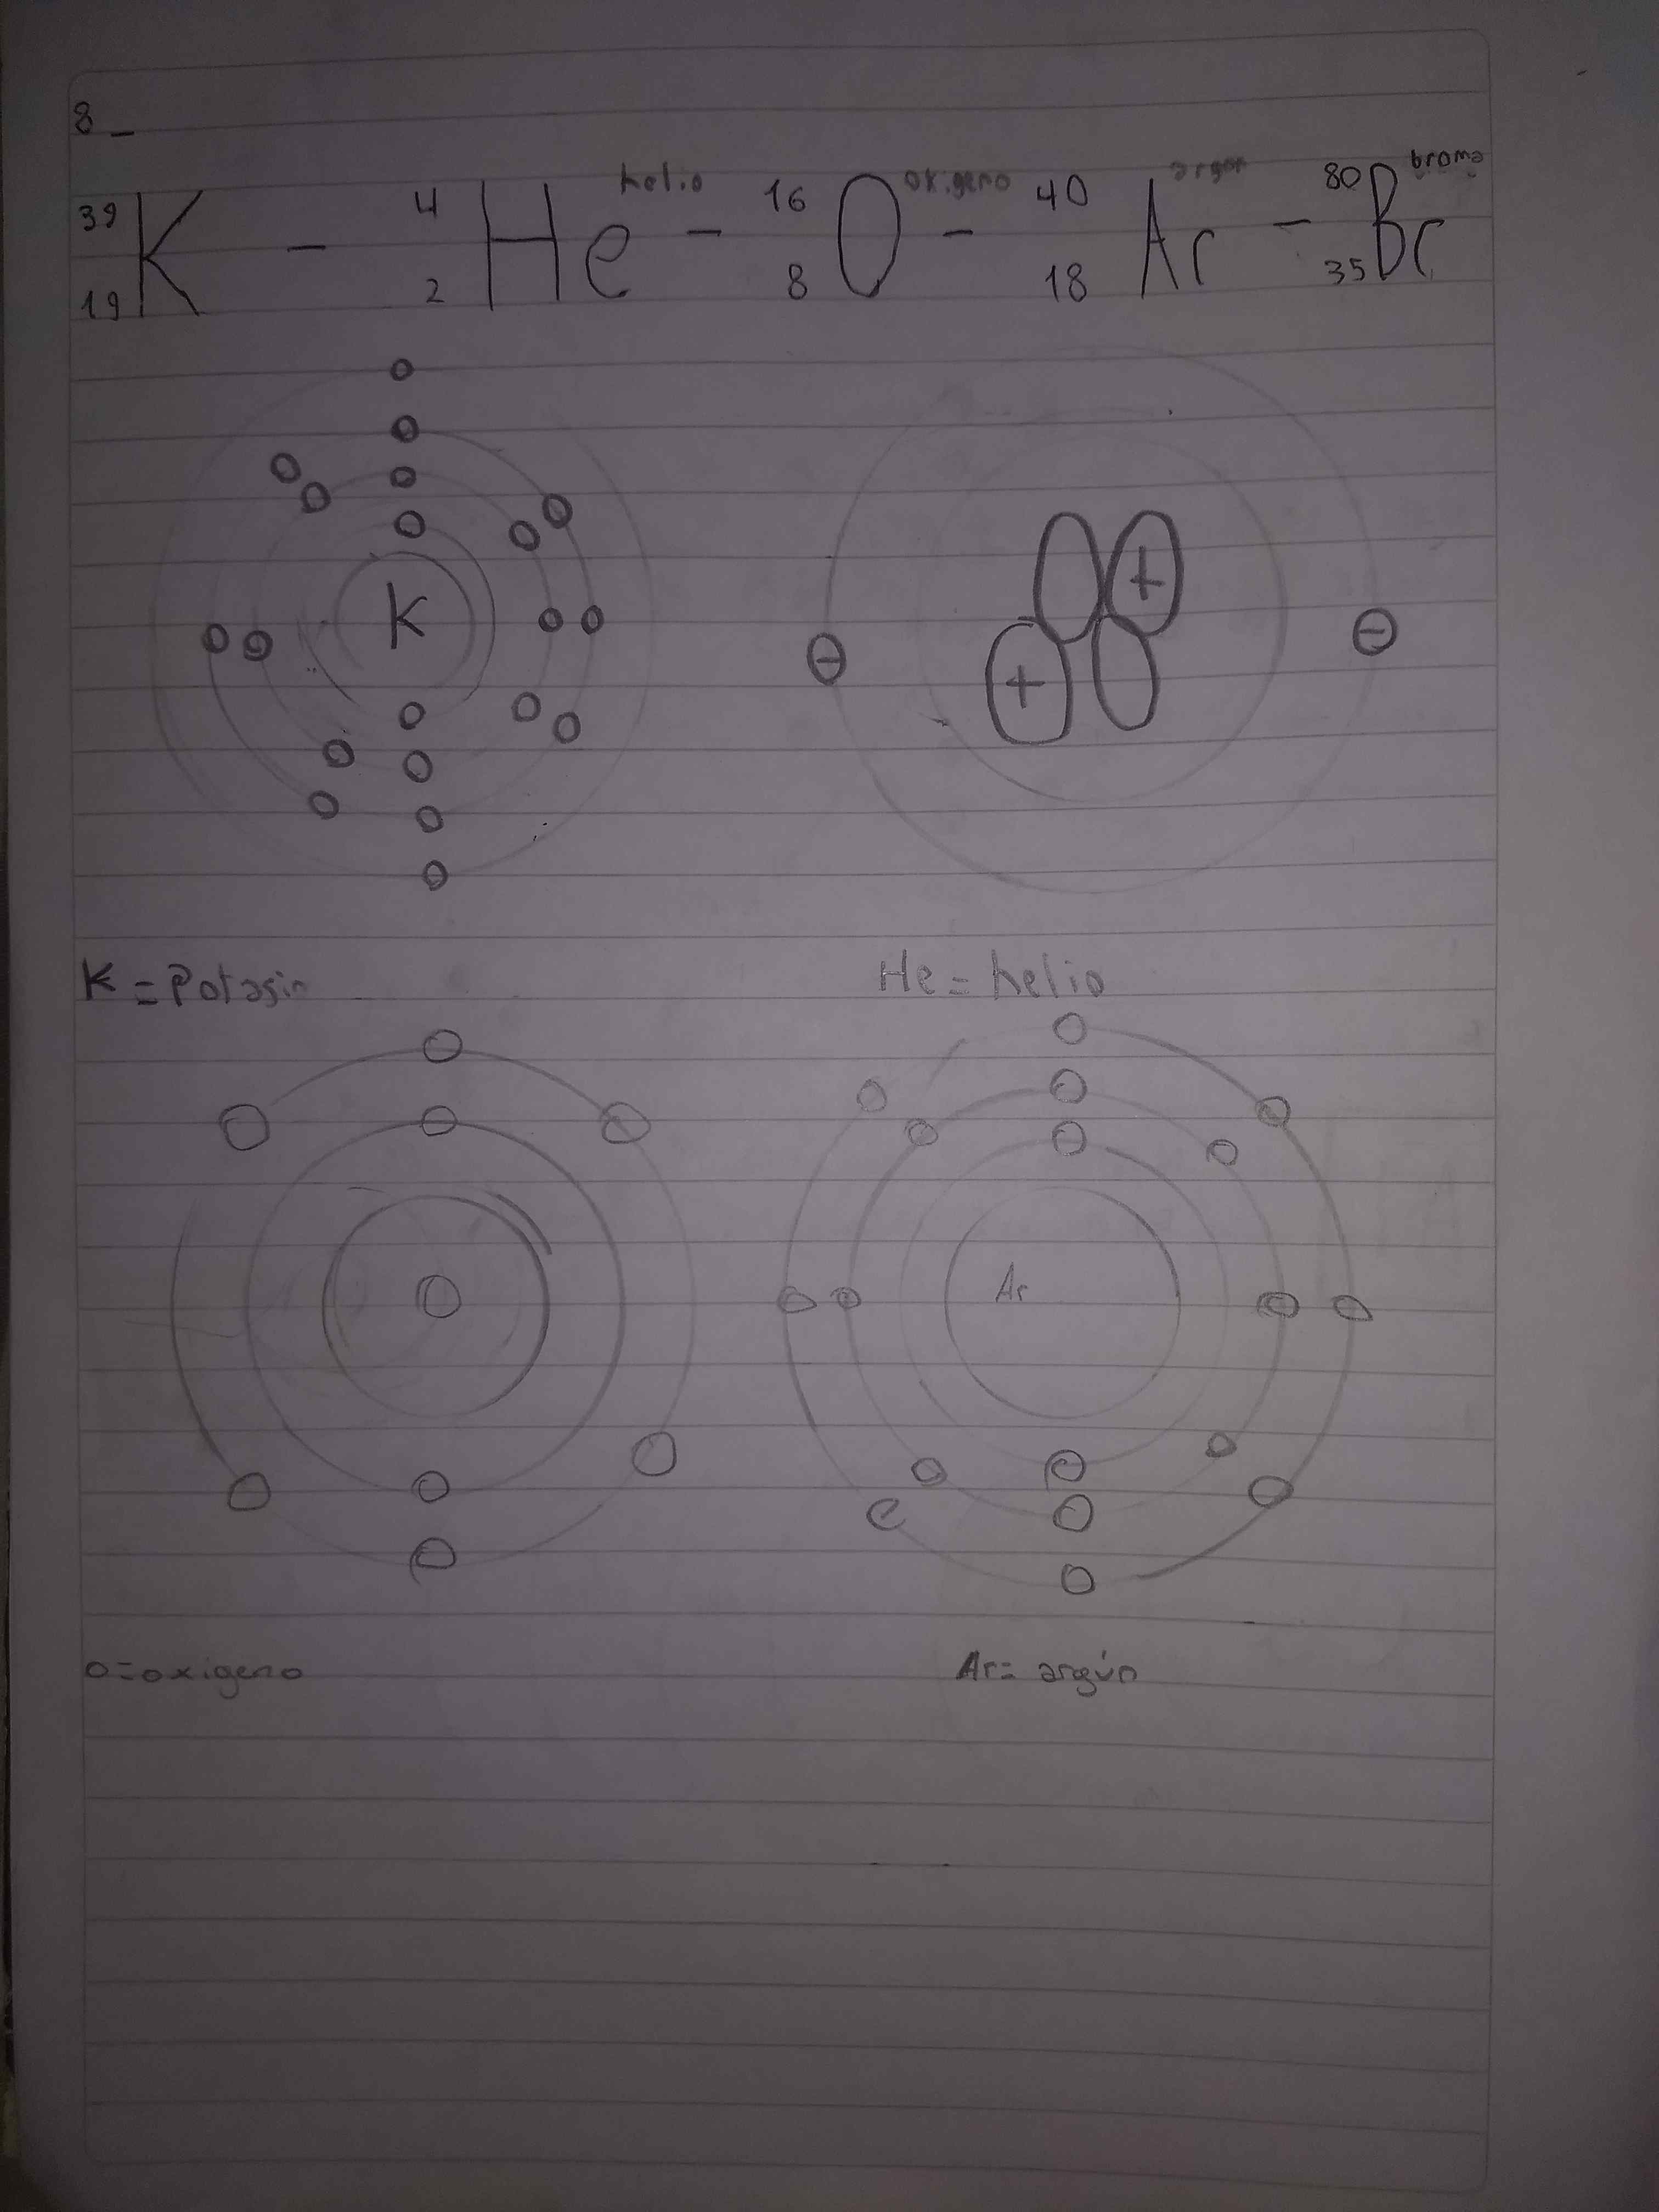 8 _
helio oxigeno argon bromo
39 4 16 40 80
K - He - O - Ar - Br
19 2 8 18 35
K
+
- + -
K = Potasio He = helio
O Ar
o=oxigeno Ar= argún